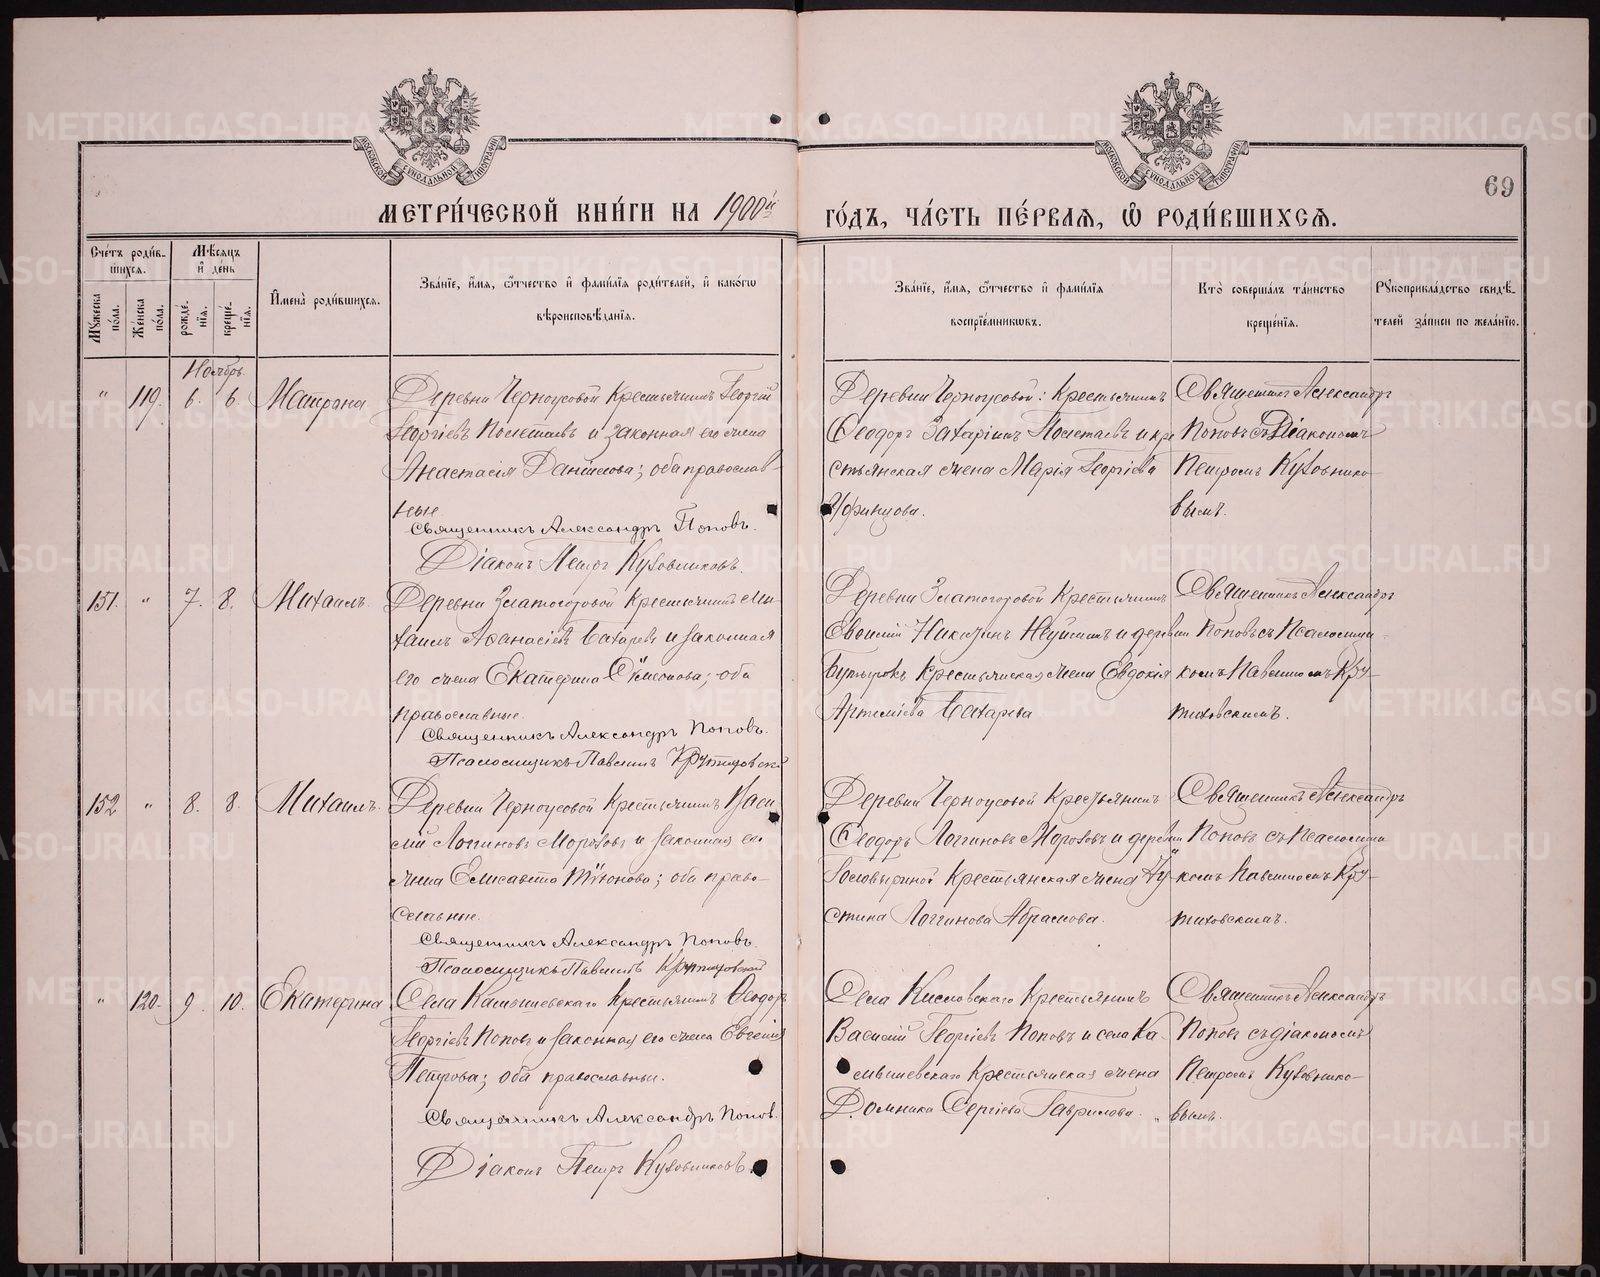 69
МЕТРИ́ЧЕСКОЙ КНИ́ГИ НА 1900й ГО́ДЪ, ЧА́СТЬ ПЕ́РВАЯ, Ѡ РОДИ́ВШИХСЯ.
Сче́тъ роди́в-
шихся.
Му́жеска по́ла.
Же́нска по́ла.
Мѣ́сяцъ
и де́нь
рожде́-
нія.
креще́-
нія.
Имена̀ роди́вшихся.
Зва́нїе, и́мя, ѻ́тчество и фами́лїя роди́телей, и како́гѡ
вѣроисповѣ́данїя.
Зва́нїе, и́мя, ѻ́тчество и фами́лїя
воспрїе́мникѡвъ.
Кто̀ соверша́лъ та́инство
креще́нїя.
Рꙋкоприкла́дство свидѣ́-
телей за́писи по жела́нїю.
Ноябрь.
" 119. 6. 6. Матрона
Деревни Черноусовой Крестьянинъ Георгій
Георгіевъ Полетаевъ и законная его жена
Анастасія Даніилова; оба православ-
ные
Священникъ Александръ Поповъ.
Діаконъ Петръ Кузовниковъ.
Деревни Черноусовой: Крестьянинъ
Ѳеодоръ Захаріинъ Полетаевъ и кре
стьянская жена Марія Георгіева
Уфинцова.
Священникъ Александръ
Поповъ съ Діакономъ
Петромъ Кузовнико-
вымъ.
151. " 7. 8. Михаилъ.
Деревни Златогоровой Крестьянинъ Ми-
хаилъ Аѳанасіевъ Бахаревъ и законная
его жена Екатерина Сѵмеонова; оба
православные.
Священникъ Александръ Поповъ.
Псаломщикъ Павелъ Крутиховскій
Деревни Златогоровой Крестьянинъ
Евѳимій Никитинъ и деревни
Бутырокъ Крестьянская жена Евдокія
Артеміева Бахарева
Священникъ Александръ
Поповъ съ Псаломщи-
комъ Павломъ Кру-
тиховскимъ.
152 " 8. 8. Михаилъ.
Деревни Черноусовой Крестьянинъ Васи-
лій Логгиновъ Морозовъ и законная его
жена Елисавета Тіѵонова; оба право-
славные.
Священникъ Александръ Поповъ.
Псаломщикъ Павелъ Крутиховскій
Деревни Черноусовой Крестьянинъ
Ѳеодоръ Логгиновъ Морозовъ и деревни
Головыриной Крестьянская жена Іу-
стина Логгинова Абрамова.
Священникъ Александръ
Поповъ съ Псаломщи-
комъ Павломъ Кру-
тиховскимъ.
" 120. 9. 10. Екатерина
Села Камышевскаго Крестьянинъ Ѳеодоръ
Георгіевъ Поповъ и законная его жена Евгенія
Петрова; оба православные.
Священникъ Александръ Поповъ.
Діаконъ Петръ Кузовниковъ.
Села Кисловскаго Крестьянинъ
Василій Георгіевъ Поповъ и села Ка-
мышевскаго Крестьянская жена
Домника Сергіева Гаврилова.
Священникъ Александръ
Поповъ съ діакономъ
Петромъ Кузовнико-
вымъ.
METRIKI.GASO-URAL.RU